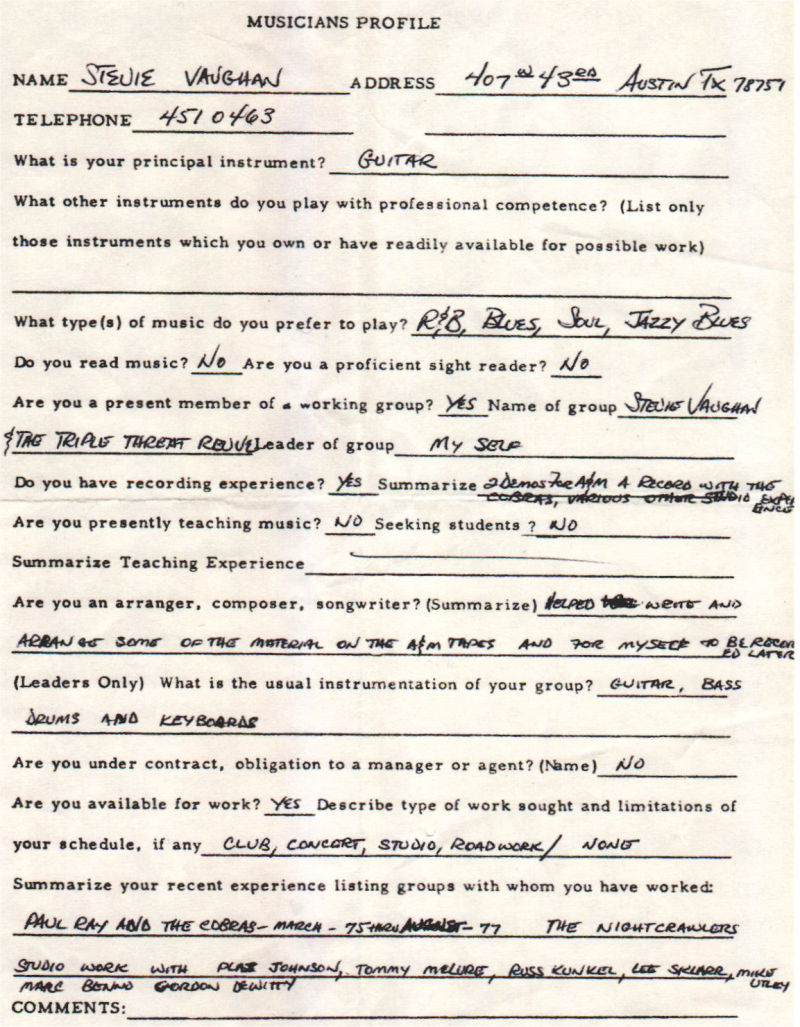 MUSICIANS PROFILE
NAME STEVIE VAUGHAN ADDRESS 407 W 43RD AUSTIN TX 78751
TELEPHONE 451 0463
What is your principal instrument? GUITAR
What other instruments do you play with professional competence? (List only
those instruments which you own or have readily available for possible work)
What type(s) of music do you prefer to play? R&B, BLUES, SOUL, JAZZY BLUES
Do you read music? NO Are you a proficient sight reader? NO
Are you a present member of a working group? YES Name of group STEVIE VAUGHAN
& THE TRIPLE THREAT Leader of group MY SELF
Do you have recording experience? YES Summarize 2 DEMOS FOR A&M A RECORD WITH THE
COBRAS, VARIOUS OTHER STUDIO EXPERIENCE
Are you presently teaching music? NO Seeking students? NO
Summarize Teaching Experience
Are you an arranger, composer, songwriter? (Summarize) HELPED WRITE AND
ARRANGE SOME OF THE MATERIAL ON THE A&M TAPES AND FOR MYSELF TO BE RECOR
ED LATER
(Leaders Only) What is the usual instrumentation of your group? GUITAR, BASS
DRUMS AND KEYBOARDS
Are you under contract, obligation to a manager or agent? (Name) NO
Are you available for work? YES Describe type of work sought and limitations of
your schedule, if any CLUB, CONCERT, STUDIO, ROADWORK / NONE
Summarize your recent experience listing groups with whom you have worked:
PAUL RAY AND THE COBRAS - MARCH - 75 THRU AUGUST - 77 THE NIGHTCRAWLERS
STUDIO WORK WITH PLAS JOHNSON, TOMMY McLURE, RUSS KUNKEL, LEE SKLARR, MIKE
UTLEY
MARC BENNO GORDON DEWITTY
COMMENTS: